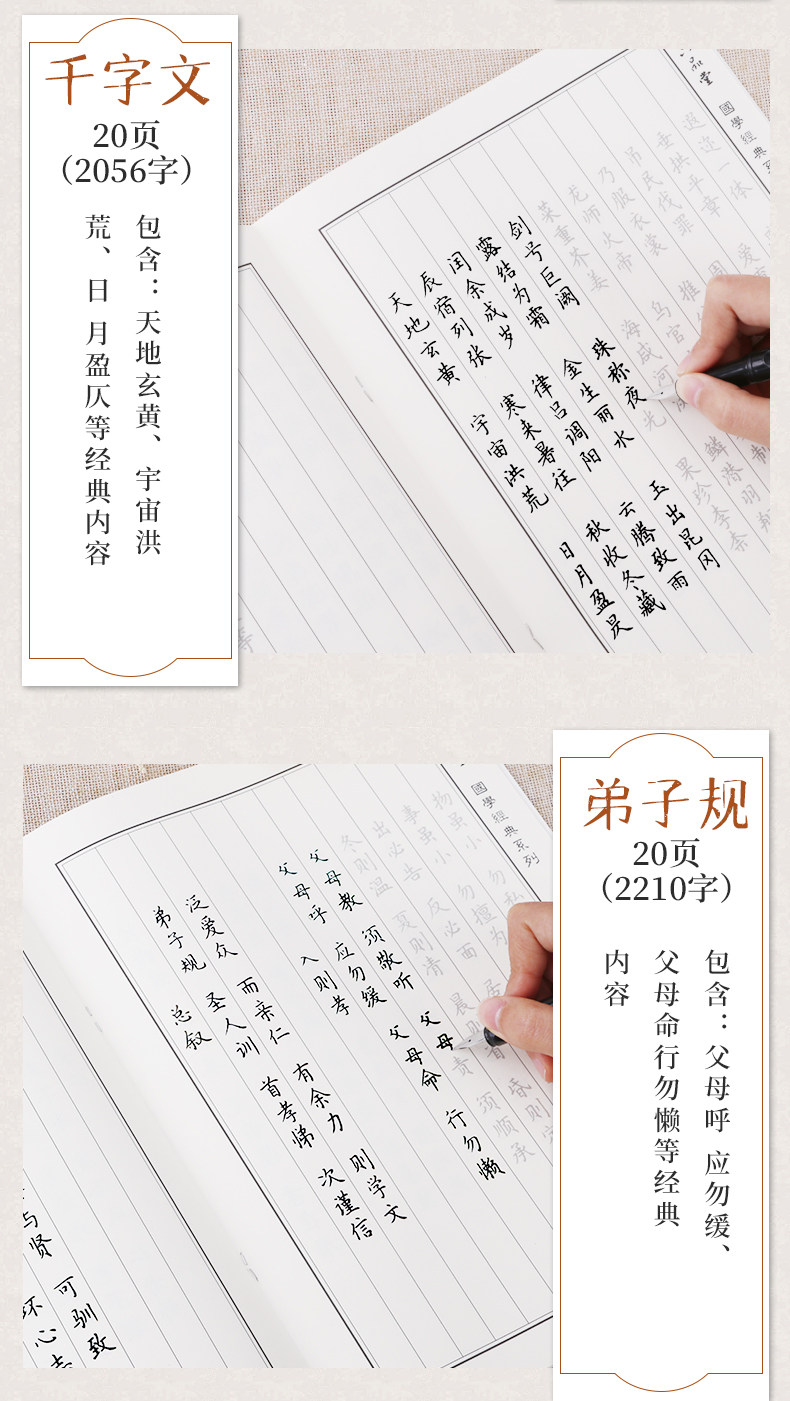 千字文
20页
（2056字）
包含：天地玄黄、宇宙洪
荒、日 月盈仄等经典内容
品堂
國學經典系
天地玄黄 宇宙洪荒 日月盈昃
辰宿列张 寒来暑往 秋收冬藏
闰余成岁 律吕调阳 云腾致雨
露结为霜 金生丽水 玉出昆冈
剑号巨阙 珠称夜光 果珍李柰
菜重芥姜 海咸河淡 鳞潜羽翔
龙师火帝 鸟官
乃服衣裳 推
吊民伐罪 周
垂拱平章 爱
遐迩一体
弟子规
20页
（2210字）
包含：父母呼 应勿缓、
父母命行勿懒等经典
内容
國學經典系列
总叙
弟子规 圣人训 首孝悌 次谨信
泛爱众 而亲仁 有余力 则学文
入则孝
父母呼 应勿缓 父母命 行勿懒
父母教 须敬听 父母责 须顺承
冬则温 夏则凊 晨则省 昏则定
出必告 反必面 居
事虽小 勿擅为
物虽小 勿私
与贤
可驯致
坏心志